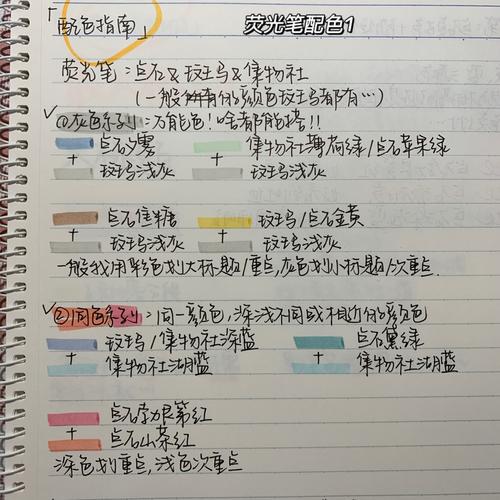 「配色指南」
荧光笔配色1
荧光笔:点石&斑马&集物社
(一般所有的颜色斑马都有…)
✓①灰色系列:万能色!啥都能搭!!
点石夕雾 集物社薄荷绿/点石苹果绿
+ +
斑马浅灰 斑马浅灰
点石焦糖 斑马/点石金黄
+ +
斑马浅灰 斑马浅灰
一般我用彩色划大标题/重点,灰色划小标题/次重点.
✓②同色系列:同一颜色,深浅不同或相近的颜色
斑马/集物社深蓝 点石黛绿
+ +
集物社湖蓝 集物社湖蓝
点石勃艮第红
+
点石山茶红
深色划重点,浅色次重点